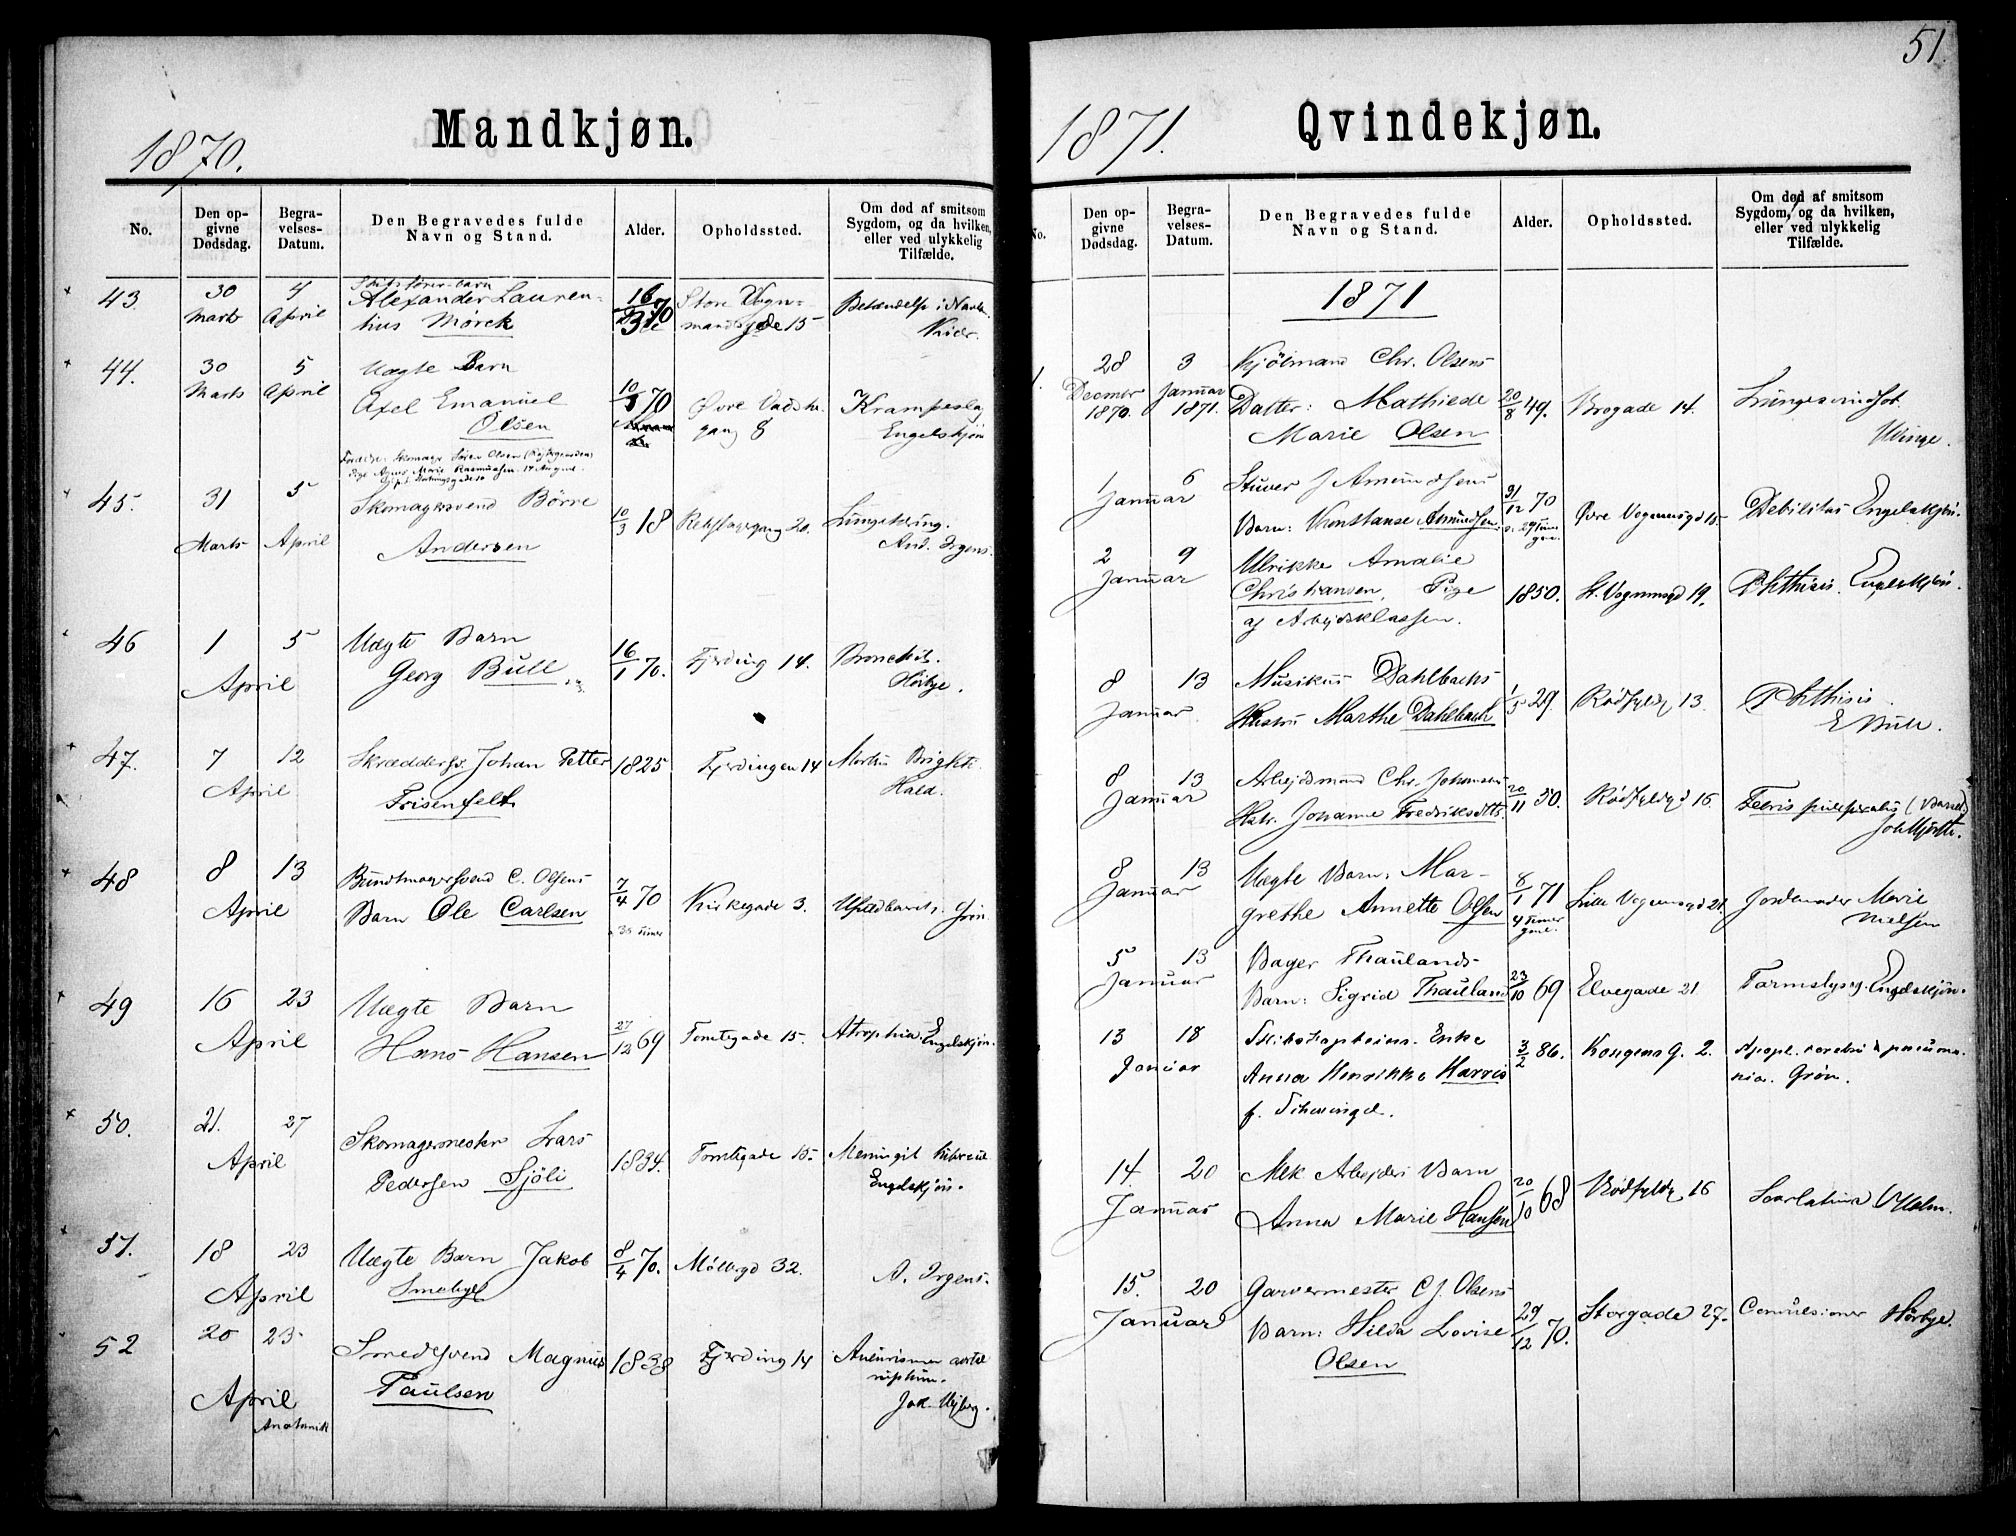 Mandkjøn.
1870.
No.
Den op-
givne
Dødsdag.
Begra-
velses-
Datum.
Den Begravedes fulde
Navn og Stand.
Alder.
Opholdssted.
Om død af smitsom
Sygdom, og da hvilken,
eller ved ulykkelig
Tilfælde.
43. 30 Marts 4 April
barn
Alexander Lauren-
tius Mörck
16 70
Store Vogn-
mandsgde 15
Betændelse i
Kiær.
44. 30 Marts 5 April
Uægte Barn
Axel Emanuel
Olsen
10/3 70
Øvre
gang 8
Krampeslag
Engelskjön
Skomager Sören Olsen
Pige Agnes Marie Rasmussen 17 August
45. 31 Marts 5 April
Skomagersvend Börre
Andersen
10/3 18
Rebslagergang 20.
Lungetæring.
And. Irgens.
46 1 April 5
Uægte Barn
Georg Bull
16/1 70.
Fjerding 14.
Bronchit.
Hörbye.
47. 7 April 12
Skrædders. Johan Petter
Frisenfelt
1825
Fjerdingen 14
Morbus Brightii.
Hald.
48 8 April 13
Bundtmagersvend C. Olsens
Barn Ole Carlsen
7/4 70
Kirkegade 3.
Grön.
49 16 April 23
Uægte Barn
Hans Hansen
27/12 69
Tomtegade 15.
Atrophia. Engelskjön.
50. 21. April 27
Skomagermester Lars
Pedersen Sjöli
1834.
Tomtegade 15.
Meningit
Engelskjön.
51. 18 April 23
Uægte Barn Jakob
8/4 70.
Möllergd 32.
A. Irgens.
52 20 April 23
Anatomik
Smedsvend Magnus
Paulsen
1838
Fjerding 14
Aneurisma aortæ
ruptum.
51.
Qvindekjøn.
1871.
No.
Den op-
givne
Dødsdag.
Begra-
velses-
Datum.
Den Begravedes fulde
Navn og Stand.
Alder.
Opholdssted.
Om død af smitsom
Sygdom, og da hvilken,
eller ved ulykkelig
Tilfælde.
1871
1. 28 Decmbr 1870. 3 Januar 1871.
Kjölmand Chr. Olsens
Datter: Mathilde
Marie Olsen
20/8 49.
Brogade 14.
Lungesvindsot.
Winge.
1 Januar 6
Stuver J Amundsens
Barn: Konstanse Amundsen
31/12 70
Övre Vognmsgd 15
Debilitas Engelskjön.
2 Januar 9
Ulrikke Amalie
Christiansen, Pige
af Arbejdsklassen.
1850.
St. Vognmsgd 19.
Phthisis. Engelskjön.
8 Januar 13
Musikus Dahlbacks
Hustru Marthe Dahlback
1/5 29.
Rödfyldg 13.
Phthisis
E Bull.
8 Januar 13
Arbejdsmand Chr. Johansens
Hstr. Johanne Fredriksdtt.
20/11 30.
Rödfyldgd 16.
Febris puerperalis (Barsel.)
Joh Hjort.
8 Januar 13
Uægte Barn: Mar-
grethe Annette Olsen
8/1 71
4 Timer
gml.
Lille Vognmsgd 21.
Jordemoder Marie
Nielsen
5 Januar 13
Bager Thaulands
Barn: Sigrid Thauland
23/10 69
Elvegade 21.
Tarmslyng. Engelskjön.
13 Januar 18
Skibskapteins Enke
Anna Henrikke Harris
f. Schwingel.
3/2 86.
Kongens G. 2.
Apopl. cerebri & pneumo-
nia. Grön.
14. Januar 20
Mek. Arbejders Barn
Anna Marie Hansen
20/10 68
Rödfyldg 16
Scarlatina Holm.
15. Januar 20
Garvermester C J. Olsens
Barn: Hilda Lovise
Olsen
29/12 70.
Storgade 27.
Convulsioner Hörbye.